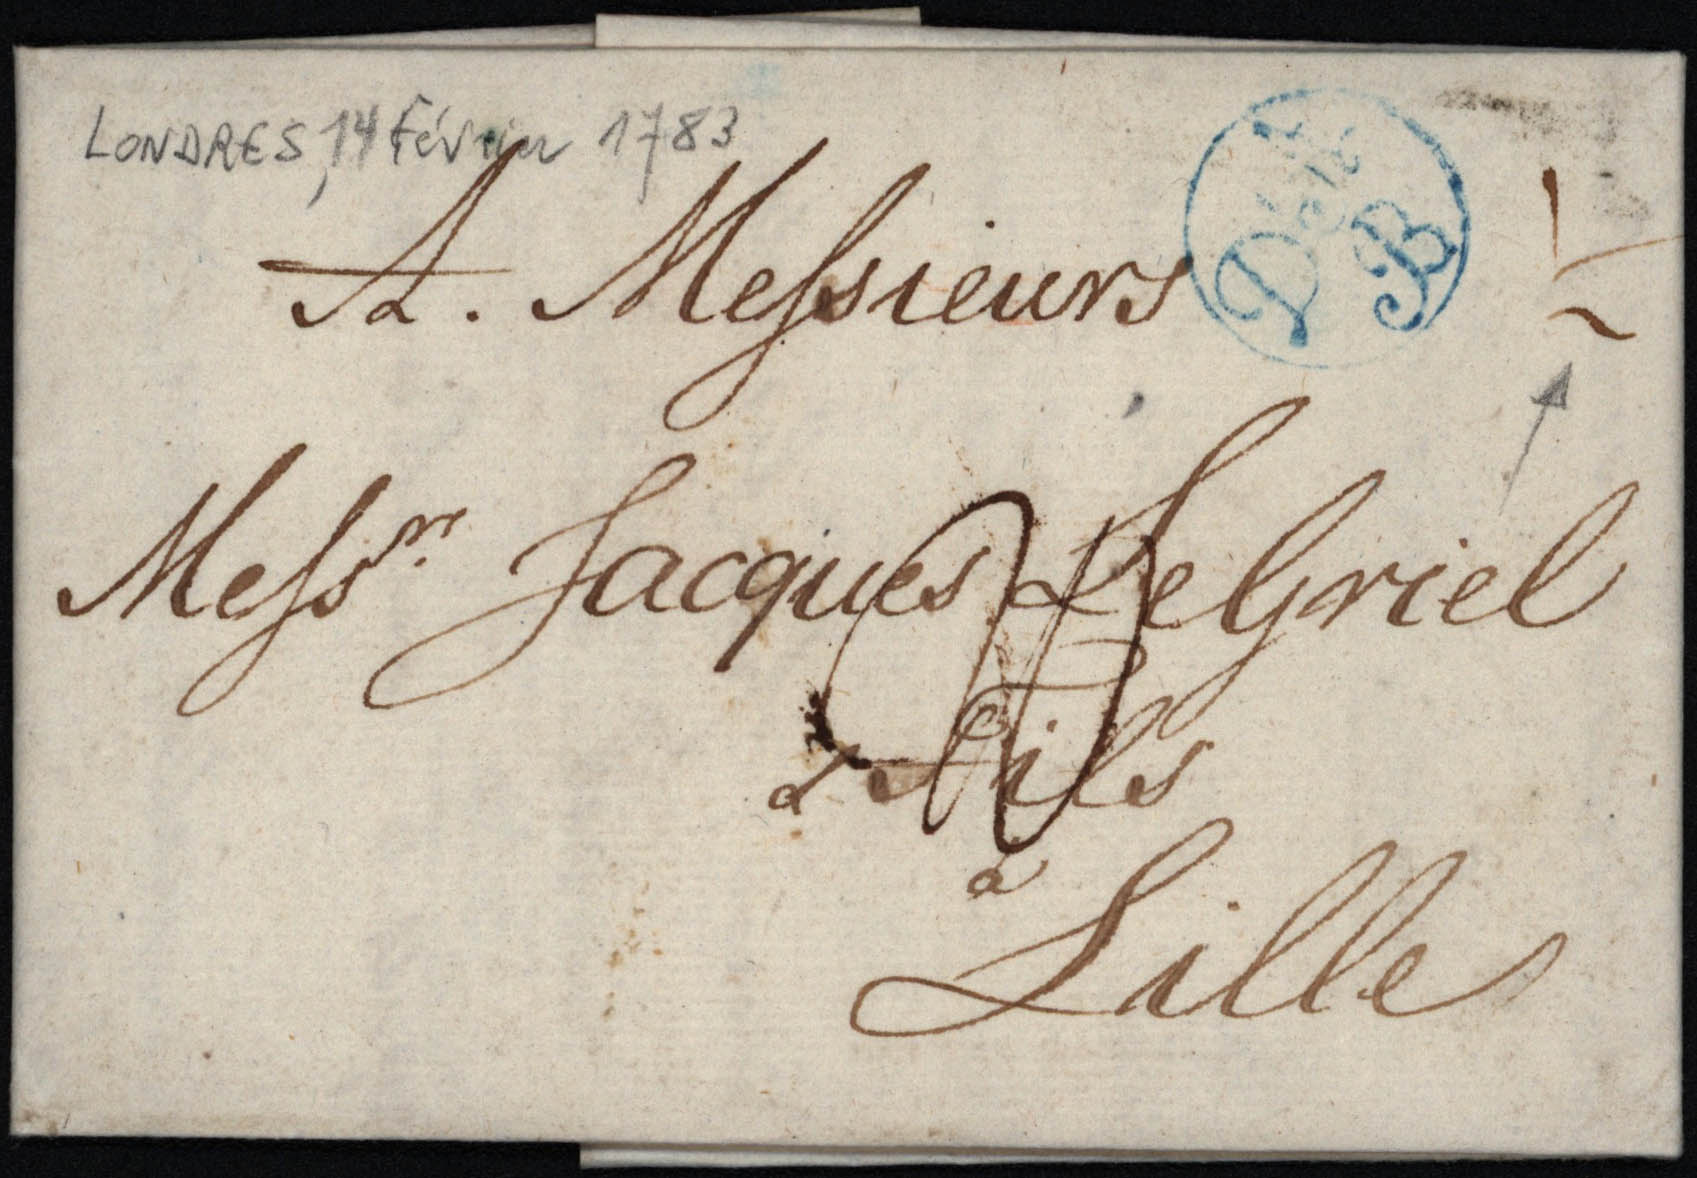 LONDRES, 14 Février 1783
A. Messieurs
D B
Messrs. Jacques LeGriel
& Fils
a
Lille